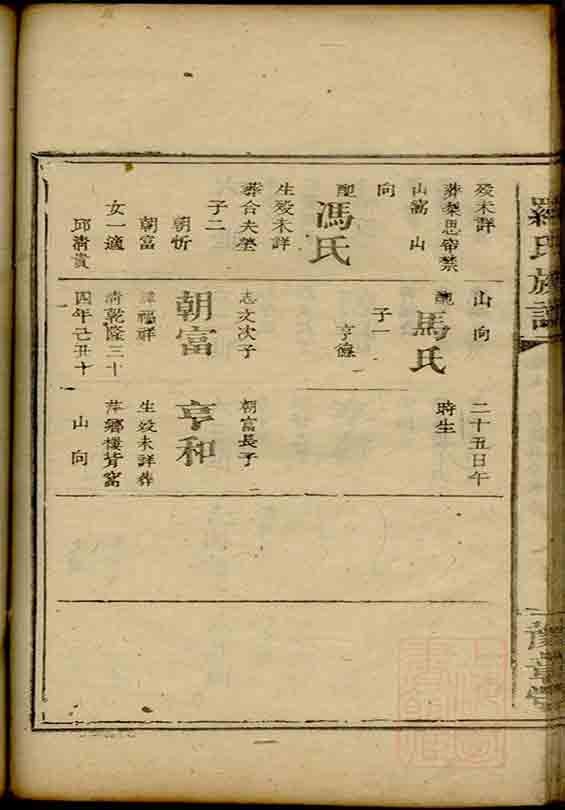 羅氏族譜
豫章堂
歿未詳
葬梨思帝禁
山窩 山
向
配
馮氏
生歿未詳
葬合夫塋
子二
朝忻
朝富
女一適
邱清貴
山 向
配
馬氏
子一
亨
志文次子
朝富
諱福祥
清乾隆三十
四年己丑十
二十五日午
時生
朝富長子
亨和
生歿未詳葬
萍鄉樓背窩
山 向